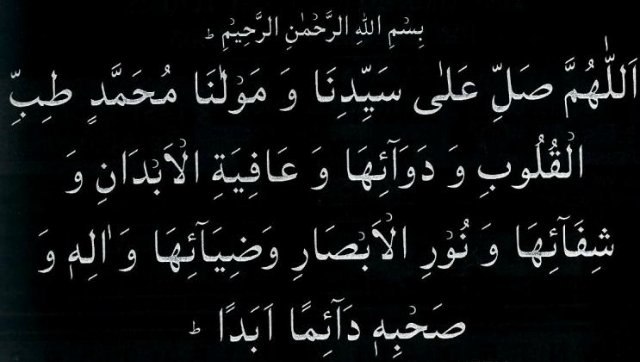 بِسْمِ اللهِ الرَّحْمٰنِ الرَّحِيْمِ ؕ
اَللّٰهُمَّ صَلِّ عَلٰى سَيِّدِنَا وَ مَوْلٰنَا مُحَمَّدٍ طِبِّ
الْقُلُوبِ وَ دَوَآئِهَا وَ عَافِيَةِ الْاَبْدَانِ وَ
شِفَآئِهَا وَ نُوْرِ الْاَبْصَارِ وَضِيَآئِهَا وَ اٰلِهٖ وَ
صَحْبِهٖ دَآئِمًا اَبَدًا ؕ